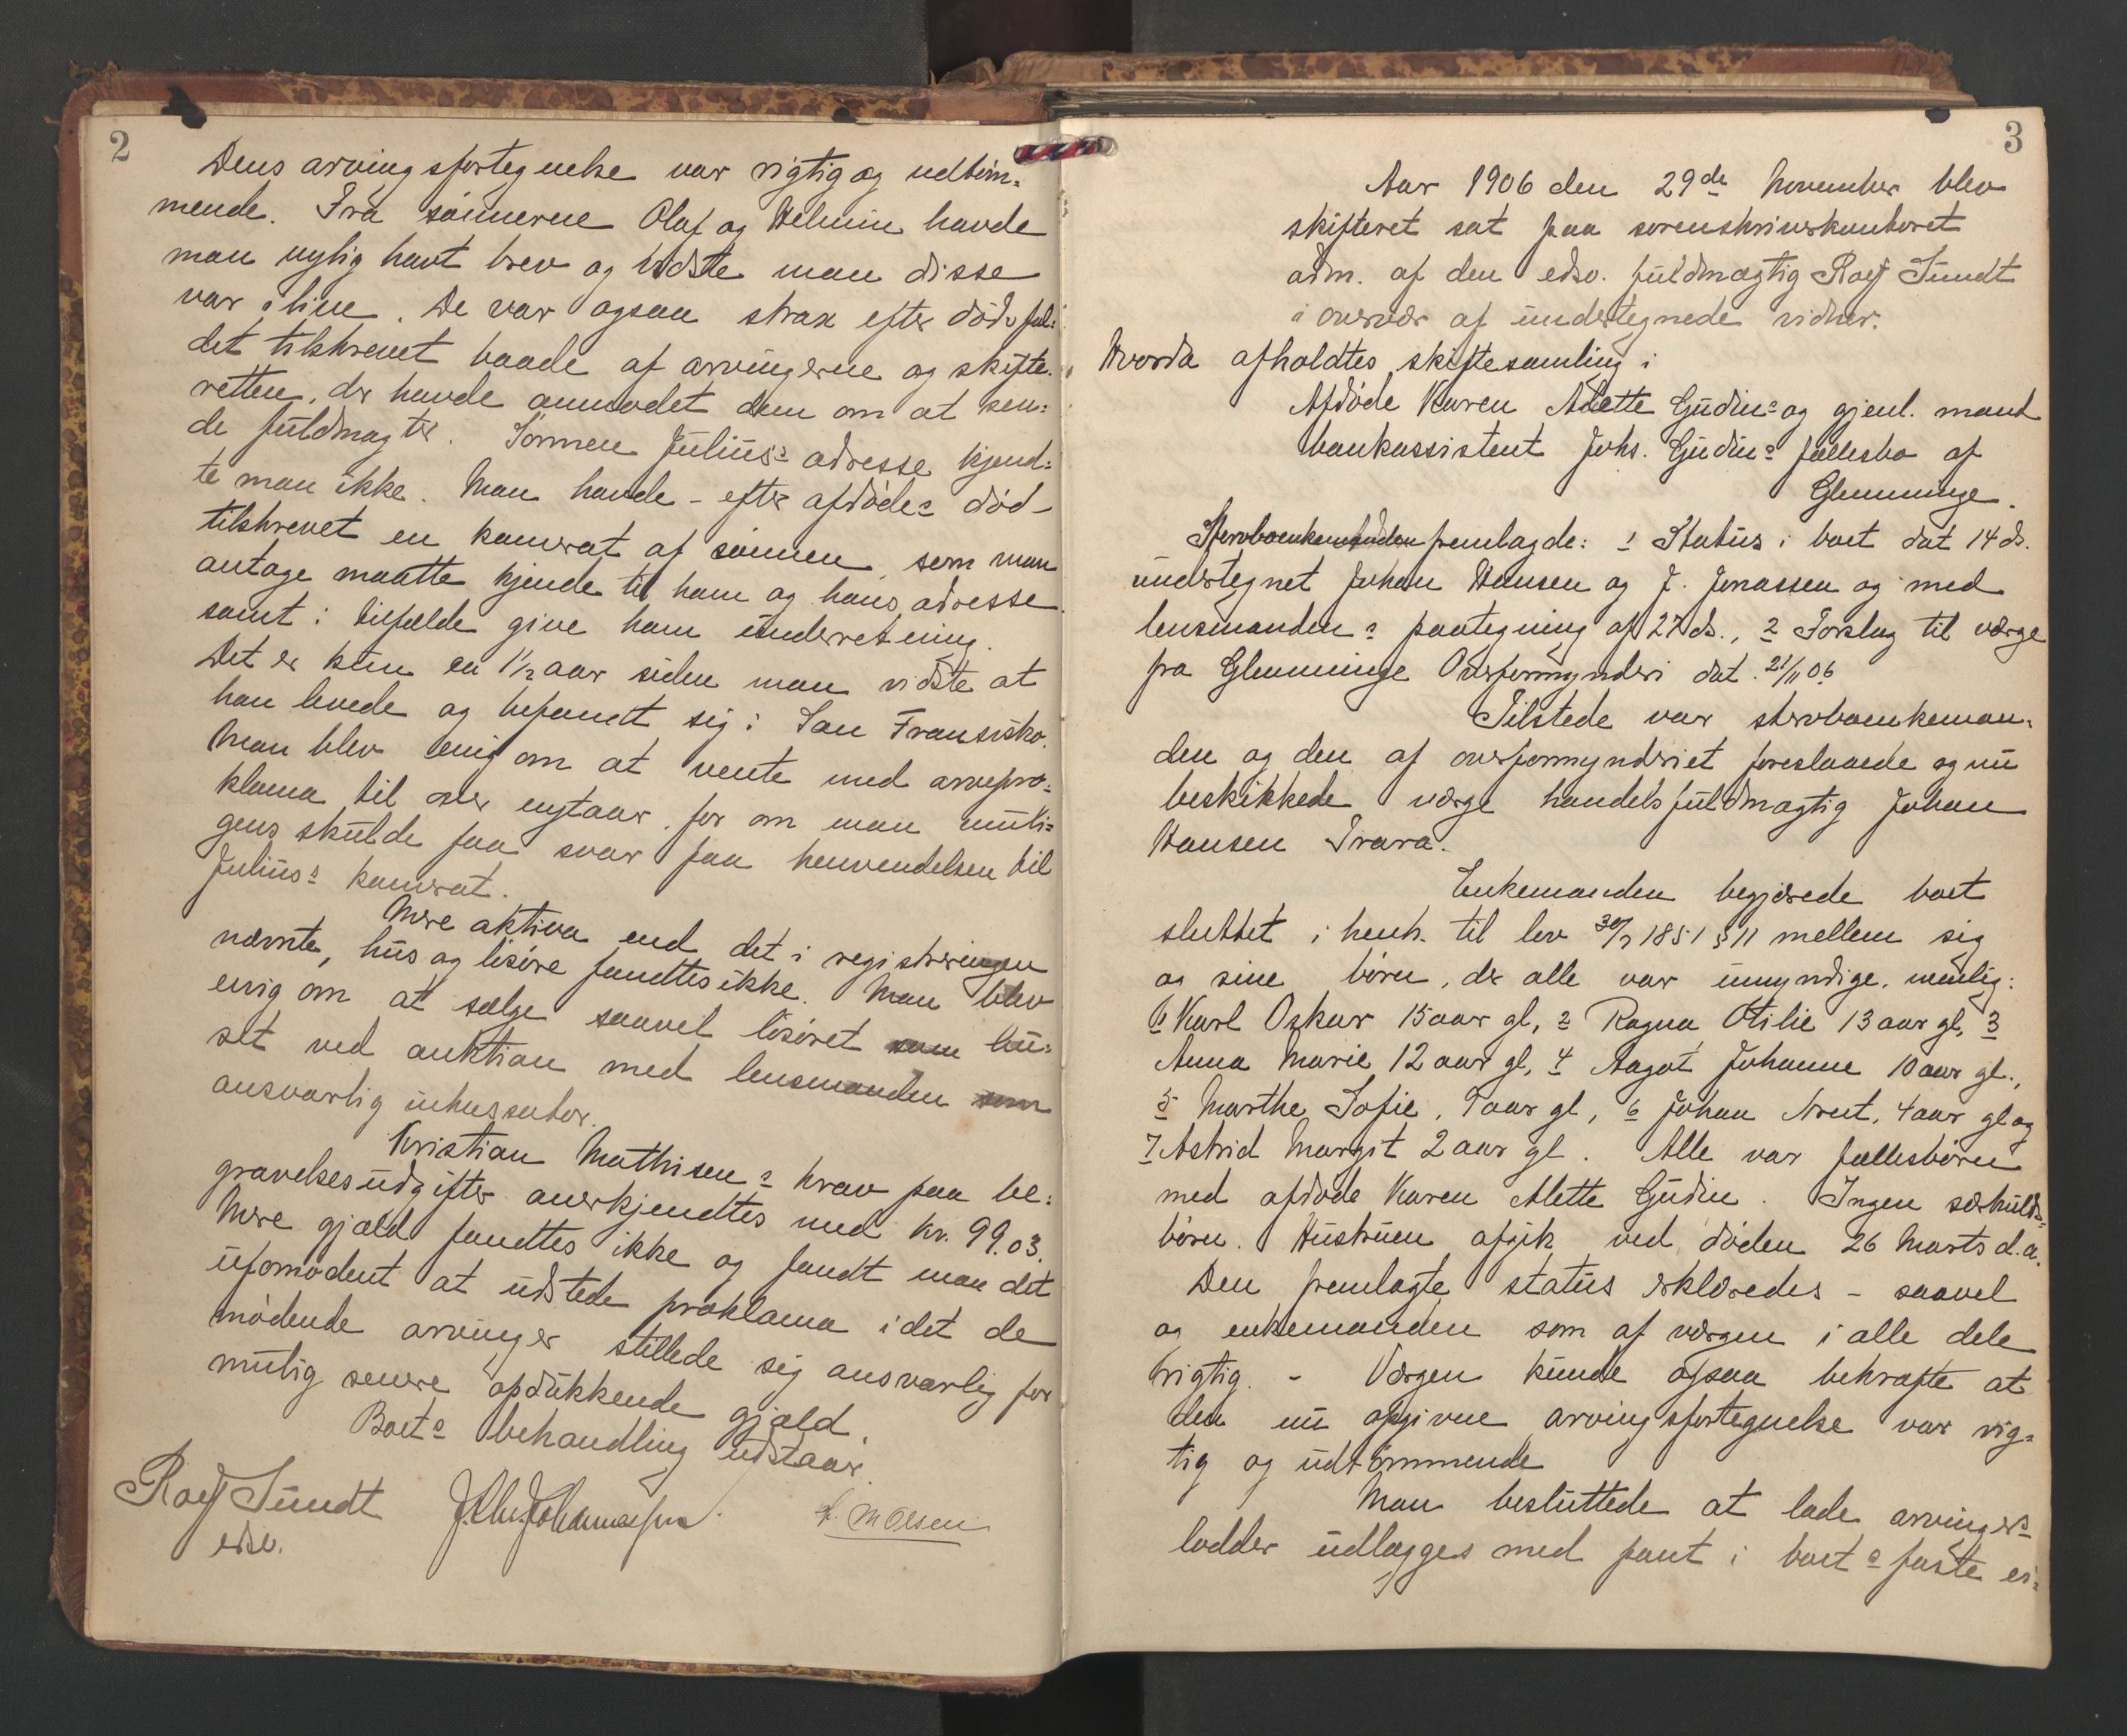 2
Dens arvingsfortegnelse var rigtig og udtöm=
mende. Fra sönnerne Olaf og Helmin havde
man nylig havt brev og vidste man disse
var ilive. De var ogsaa strax efter dödsfal=
det tilskrevet baade af arvingerne og skifte=
retten, der havde anmodet dem om at sen=
de fuldmagter. Sönnen Julius's adresse kjend=
te man ikke. Man havde - efter afdödes död -
tilskrevet en kamerat af sönnen, som man
antage maatte kjende til ham og hans adresse
samt i tilfælde give ham underretning.
Det er kun en 1½ aar siden man vidste at
han levede og befandt sig i San Fransisko.
Man blev enig om at vente med arvepro=
klama til over nytaar, for om man muli=
gens skulde faa svar paa henvendelsen til
Julius's kamerat.
Mere aktiva end det i registreringen
nævnte, hus og lösöre fandtes ikke. Man blev
enig om at sælge saavel lösöret som hu=
set ved auktion med lensmanden som
ansvarlig inkassator.
Kristian Mathisens krav paa be=
gravelsesudgifter anerkjendtes med kr. 99.03.
Mere gjæld fandtes ikke og fandt man det
ufornödent at udstede proklama idet de
mödende arvinger stillede sig ansvarlig for
mulig senere opdukkende gjæld.
Boets behandling udstaar.
Rolf Sundt J. Chr. Johannessen. M Olsen
edsv.
3
Aar 1906 den 29de November blev
skifteret sat paa sorenskriverkontoret
adm. af den edsv. fuldmægtig Rolf Sundt
i overvær af undertegnede vidner.
Hvorda afholdtes skiftesamling i
Afdöde Karen Alette Gudins og gjenl. mand
bankassistent Johs. Gudins fællesbo af
Glemminge.
Stervboenkemanden fremlagde: 1 Status i boet dat 14 ds.
undertegnet Johan Hansen og J. Jonassen og med
lensmandens paategning af 27 ds., 2 Forslag til værge
fra Glemminge Overformynderi dat. 21/11 06
Tilstede var stervboenkeman=
den og den af overformynderiet foreslaaede og nu
beskikkede værge handelsfuldmægtig Johan
Hansen Trara.
Enkemanden begjærede boet
sluttet i henh. til lov 30/7 1851 § 11 mellem sig
og sine börn, der alle var umyndige, nemlig:
1 Karl Oskar 15 aar gl, 2 Ragna Otilie 13 aar gl, 3
Anna Marie 12 aar gl, 4 Aagot Johanne 10 aar gl.,
5 Marthe Sofie, 9 aar gl, 6 Johan Arnt, 4 aar gl og
7 Astrid Margit 2 aar gl. Alle var fællesbörn
med afdöde Karen Alette Gudin. Ingen særkulds=
börn. Hustruen afgik ved döden 26 Marts d.a.
Den fremlagte status erklæredes - saavel
og enkemanden som af værgen i alle dele
rigtig. - Værgen kunde ogsaa bekræfte at
den nu opgivne arvingsfortegnelse var rig=
tig og udtömmende
Man besluttede at lade arvingers
lodder udlægges med pant i boets faste ei=